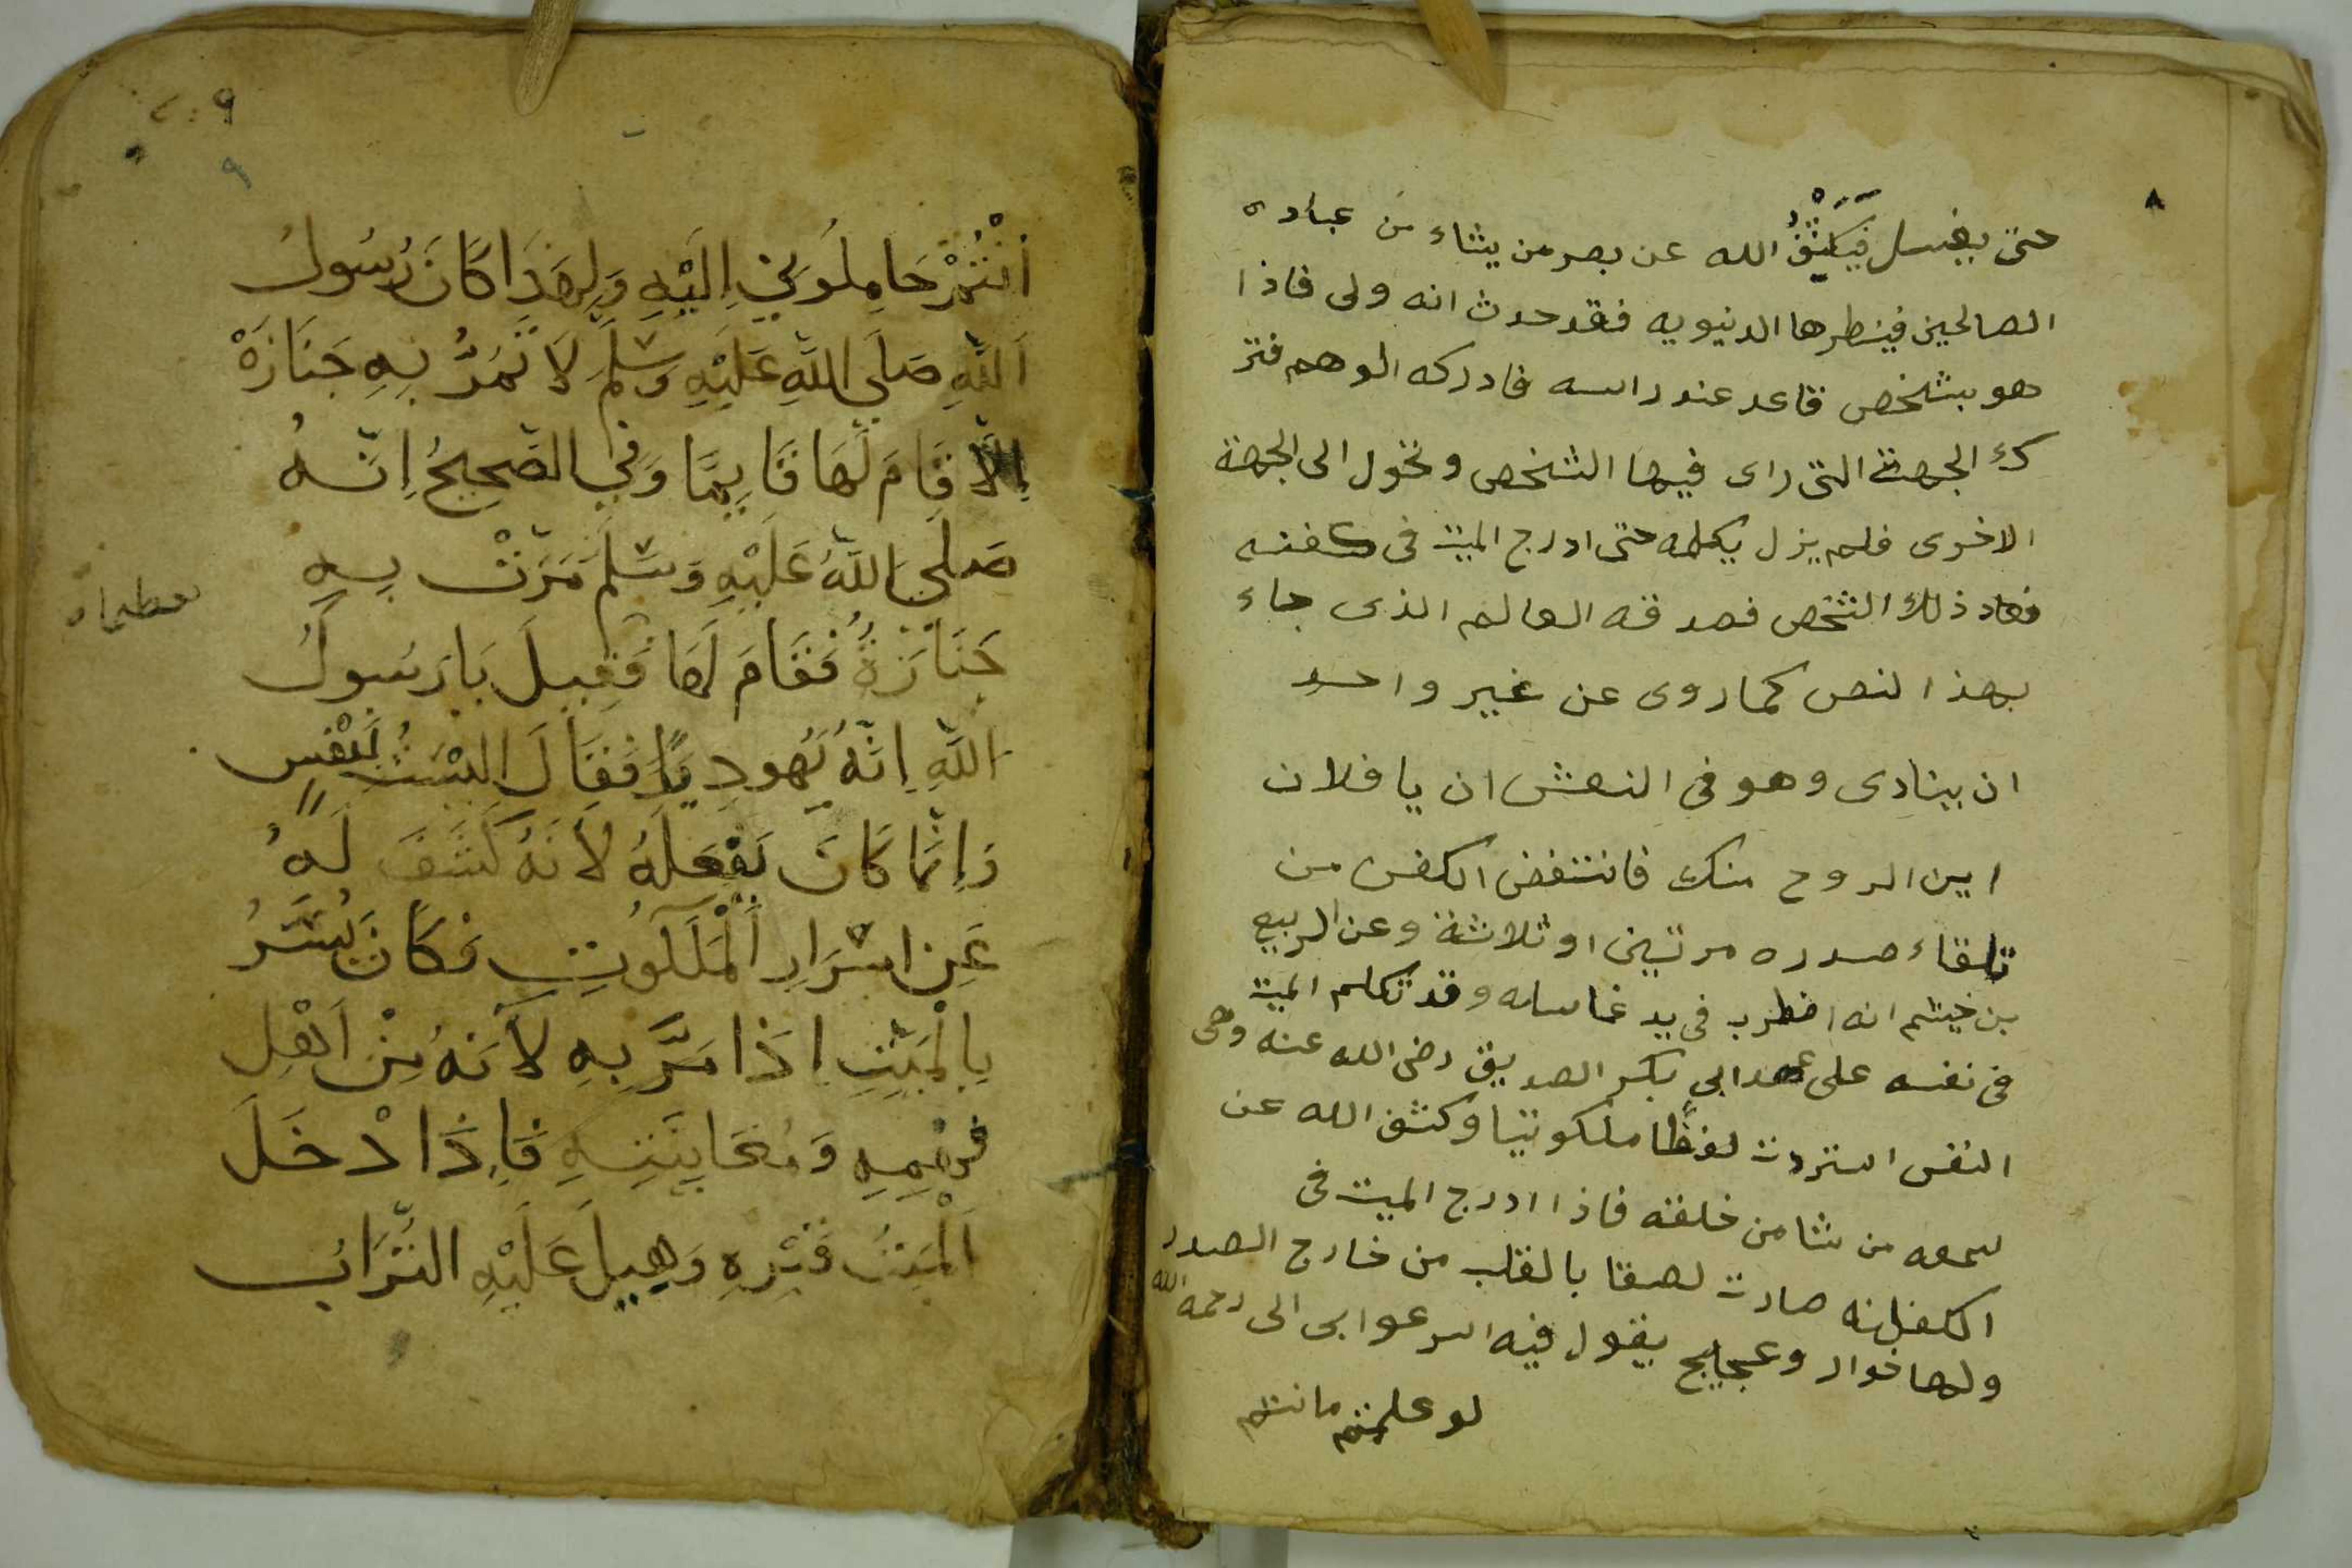 ٨
حتى يغسل فيكشف الله عن بصر من يشاء من عباده
الصالحين فينظرها الدنيويه فقد حدث انه ولى فاذا
هو بشخص قاعد عند راسه فادركه الوهم فتر
ك الجهة التى راى فيها الشخص وتحول الى الجهة
الاخرى فلم يزل يكلمه حتى ادرج الميت فى كفنه
فعاد ذلك الشخص فصدقه العالم الذى جاء
بهذا النص كما روى عن غير واحد
ان ينادى وهو فى النعش ان يا فلان
اين الروح منك فانتفض الكفن من
تلقاء صدره مرتين او ثلاثة وعن الربيع
بن خيثم انه اضطرب فى يد غاسله وقد تكلم الميت
فى نفسه على عهد ابى بكر الصديق رضى الله عنه وهى
النفس استردت لفظا ملكوتيا وكشف الله عن
سمعه من شا من خلقه فاذا ادرج الميت فى
اكفانه صارت لصقا بالقلب من خارج الصدر
ولها خوار وعجيج يقول فيه اسرعوا بى الى رحمه الله
لو علمتم ما انتم
٩
٩
اَنْتُمْ حَامِلُونِي اِلَيْهِ وَلِهَذَا كَانَ رَسُولُ
اَللَّهِ صَلَى اللَّهِ عَلَيْهِ وَسَلَمَ لَا تَمَرُّ بِهِ جَنَازَةْ
اِلَّا قَامَ لَهَا قَايِمًا وَفِي الصَّحِيحُ اِنَّهُ
صَلَّى اللَّهُ عَلَيْهِ وَسَلَمَ مَرَّتْ بِهِ
جَنَازَةُ فَقَامَ لَهَا فَقِيلَ يَا رَسُولَ
اللَّهِ اِنَّهُ يَهُودِيًا فَقَالَ اَلَيْسَتْ نَفْسٍ
وَاِنَّمَا كَانَ يَفْعَلَهُ لاَنَهُ كَشَفَ لَهُ
عَنِ اسْرَارِ اَلْمَلَكُوتِ فَكَانَ يُسَرُ
بِالْمَيِّتِ اِذَا مَرَّ بِهِ لاَنَهُ مِنْ اَهْلِ
فَهْمِهِ وَمُعَايِنَتِهِ فَاِذَا اُدْخَلَ
اَلْمَيِتُ قَبْرِهِ وَهِيلَ عَلَيْهِ التُّرَابُ